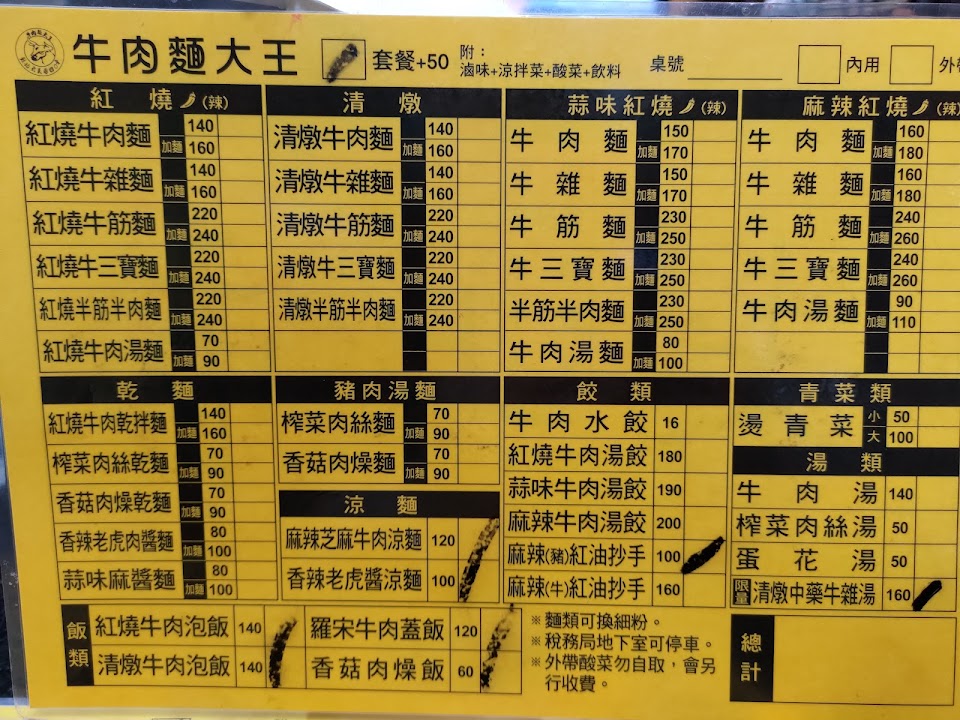 牛肉麵大王 套餐+50 附： 桌號 內用 外
滷味+涼拌菜+酸菜+飲料
紅燒(辣)
紅燒牛肉麵 140 加麵 160
紅燒牛雜麵 140 加麵 160
紅燒牛筋麵 220 加麵 240
紅燒牛三寶麵 220 加麵 240
紅燒半筋半肉麵 220 加麵 240
紅燒牛肉湯麵 70 加麵 90
清燉
清燉牛肉麵 140 加麵 160
清燉牛雜麵 140 加麵 160
清燉牛筋麵 220 加麵 240
清燉牛三寶麵 220 加麵 240
清燉半筋半肉麵 220 加麵 240
蒜味紅燒(辣)
牛肉麵 150 加麵 170
牛雜麵 150 加麵 170
牛筋麵 230 加麵 250
牛三寶麵 230 加麵 250
半筋半肉麵 230 加麵 250
牛肉湯麵 80 加麵 100
麻辣紅燒(辣)
牛肉麵 160 加麵 180
牛雜麵 160 加麵 180
牛筋麵 240 加麵 260
牛三寶麵 240 加麵 260
牛肉湯麵 90 加麵 110
乾麵
紅燒牛肉乾拌麵 140 加麵 160
榨菜肉絲乾麵 70 加麵 90
香菇肉燥乾麵 70 加麵 90
香辣老虎肉醬麵 80 加麵 100
蒜味麻醬麵 80 加麵 100
豬肉湯麵
榨菜肉絲麵 70 加麵 90
香菇肉燥麵 70 加麵 90
涼麵
麻辣芝麻牛肉涼麵 120
香辣老虎醬涼麵 100
餃類
牛肉水餃 16
紅燒牛肉湯餃 180
蒜味牛肉湯餃 190
麻辣牛肉湯餃 200
麻辣(豬)紅油抄手 100
麻辣(牛)紅油抄手 160
青菜類
燙青菜 小 50 大 100
湯類
牛肉湯 140
榨菜肉絲湯 50
蛋花湯 50
限量 清燉中藥牛雜湯 160
飯類
紅燒牛肉泡飯 140
清燉牛肉泡飯 140
羅宋牛肉蓋飯 120
香菇肉燥飯 60
※麵類可換細粉。
※稅務局地下室可停車。
※外帶酸菜勿自取，會另
行收費。
總計